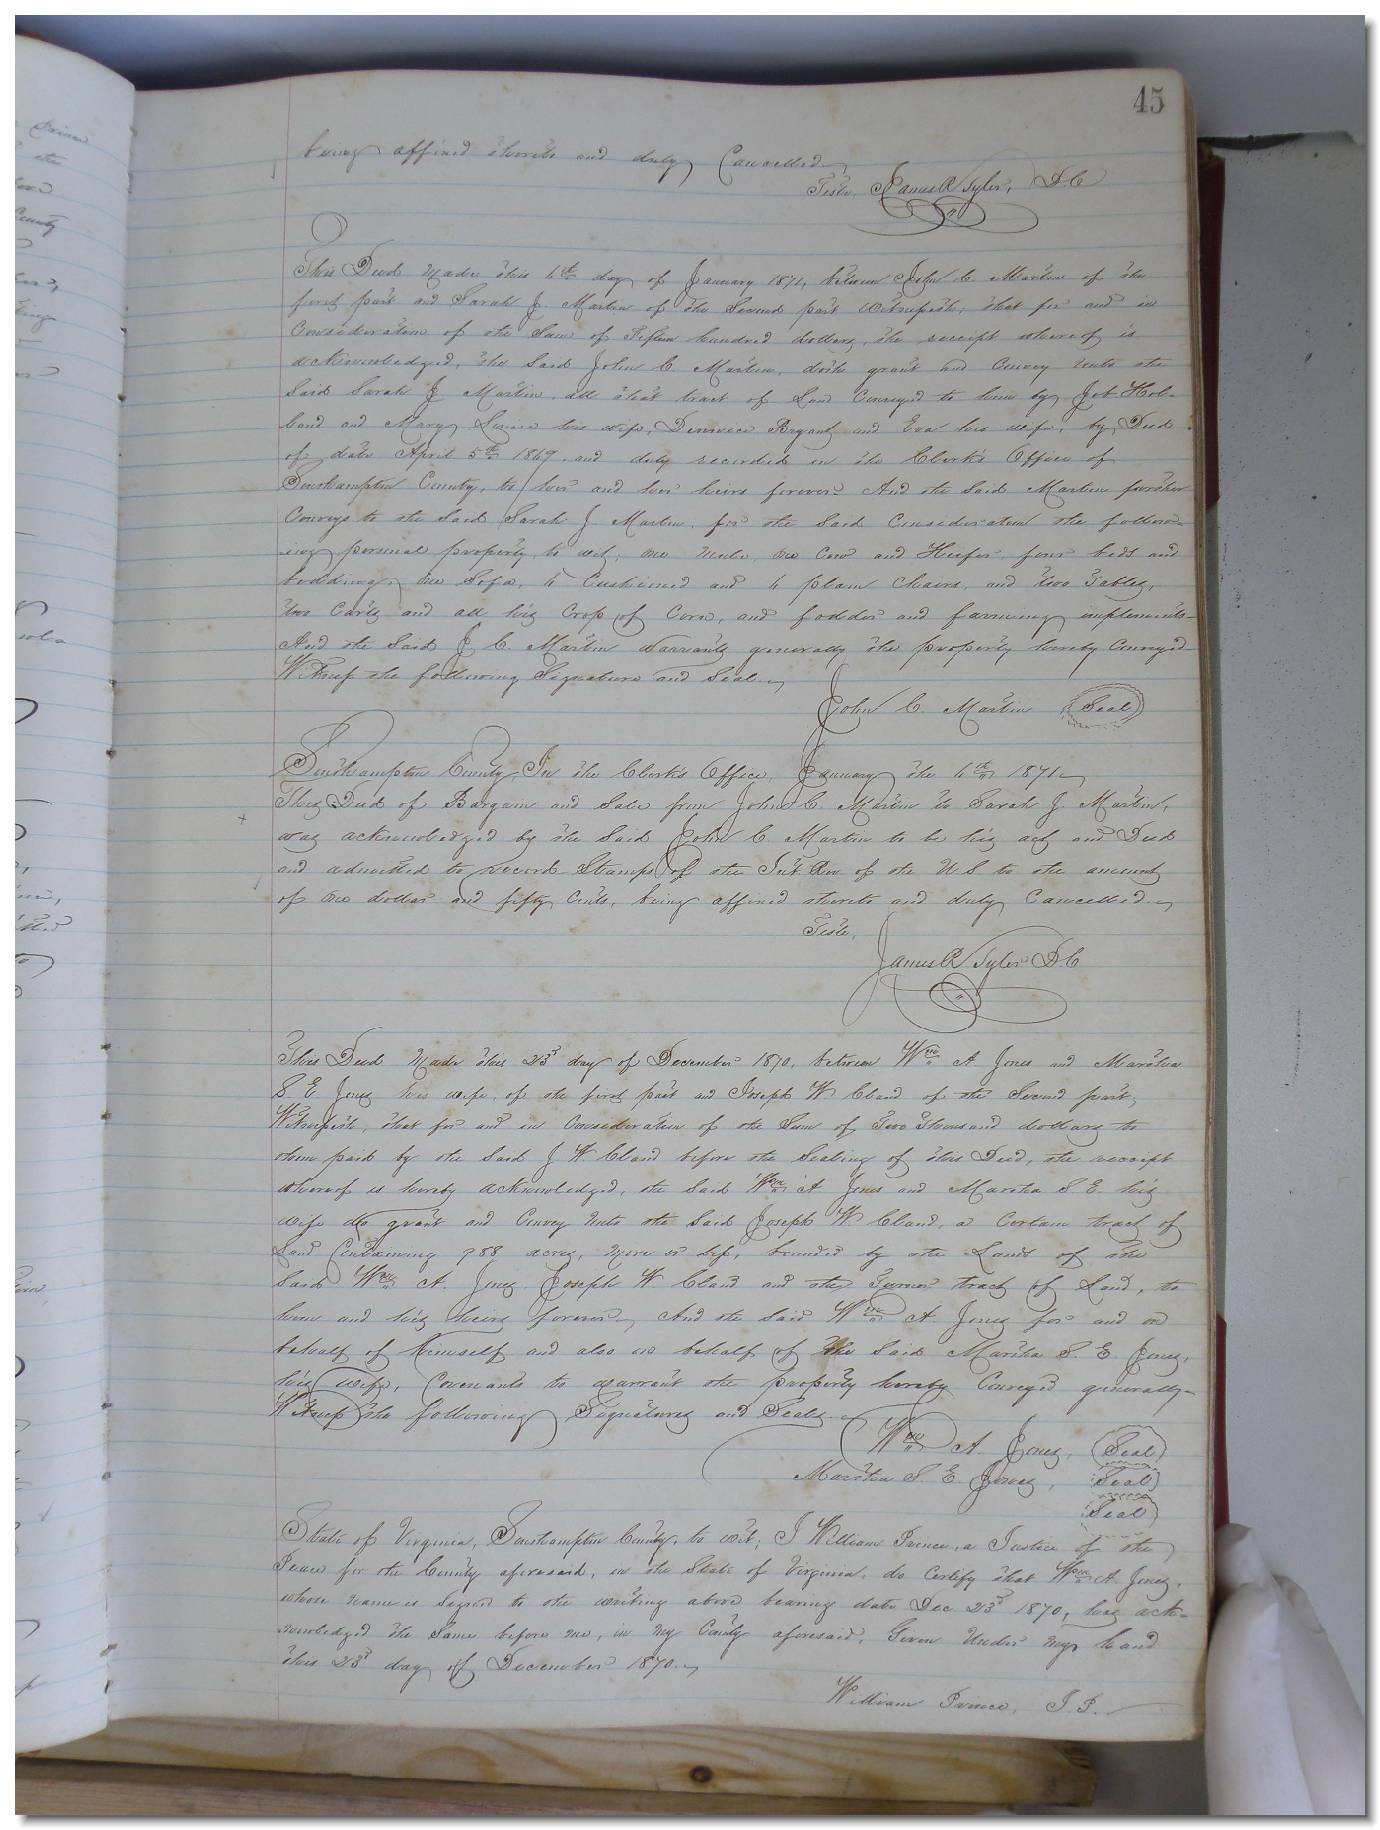 45
being affixed thereto and duly Cancelled
Teste, James R Tyler, D.C
This Deed Made this 4th day of January 1871, between John C. Martin of the
first part and Sarah J. Martin of the Second part Witnesseth, that for and in
Consideration of the Sum of Fifteen hundred dollars, the receipt whereof is
acknowledged, the Said John C. Martin, doth grant and Convey unto the
Said Sarah J. Martin, all that tract of Land Conveyed to him by Job Hol-
land and Mary his wife, Bryant and Eva his wife, by Deed
of date April 5th 1869, and duly recorded in the Clerk's Office of
Southampton County, to her and her heirs forever. And the Said Martin further
Conveys to the Said Sarah J. Martin, for the Said Consideration the follow-
ing personal property, to wit; One Mule, One Cow and Heifer, four beds and
bedding, One Sofa, 4 Cushioned and 4 plain Chairs, and two Tables,
two Carts and all his Crop of Corn, and fodder and farming implements-
And the Said J. C. Martin Warrants generally the property hereby Conveyed-
Witness the following Signature and Seal.
John C. Martin Seal
Southampton County, In the Clerk's Office, January the 4th 1871
This Deed of Bargain and Sale from John C. Martin to Sarah J. Martin,
was acknowledged by the Said John C. Martin to be his act and Deed
and admitted to record. Stamps of the Int. Rev of the U.S to the amount
of One dollar and fifty Cents, being affixed thereto and duly Cancelled.
Teste,
James R Tyler D.C
This Deed Made this 23d day of December 1870, between Wm A Jones and Martha
S. E Jones his wife, of the first part and Joseph W Claud of the Second part,
Witnesseth, that for and in Consideration of the Sum of Two Thousand dollars to
them paid by the Said J W. Claud before the Sealing of this Deed, the receipt
whereof is hereby acknowledged, the Said Wm A Jones and Martha S. E. his
wife do grant and Convey Unto the Said Joseph W Claud, a Certain tract of
Land Containing 988 acres, More or less, bounded by the Lands of the
Said Wm A. Jones, Joseph W. Claud and the Turner tract of Land, to
him and his heirs forever, And the Said Wm A. Jones for and on
behalf of himself and also on behalf of the Said Martha S. E. Jones,
his wife, Covenants to warrant the property hereby Conveyed generally-
Witness the following Signatures and Seals.
Wm A. Jones, Seal
Martha S. E. Jones, Seal
Seal
State of Virginia, Southampton County, to wit; I William Prince, a Justice of the
Peace for the County aforesaid, in the State of Virginia, do Certify that Wm A. Jones,
whose name is Signed to the writing above bearing date Dec 23d 1870, has ack-
nowledged the Same before me, in My County aforesaid, Given Under My hand
this 23d day of December 1870.
William Prince, J.P.